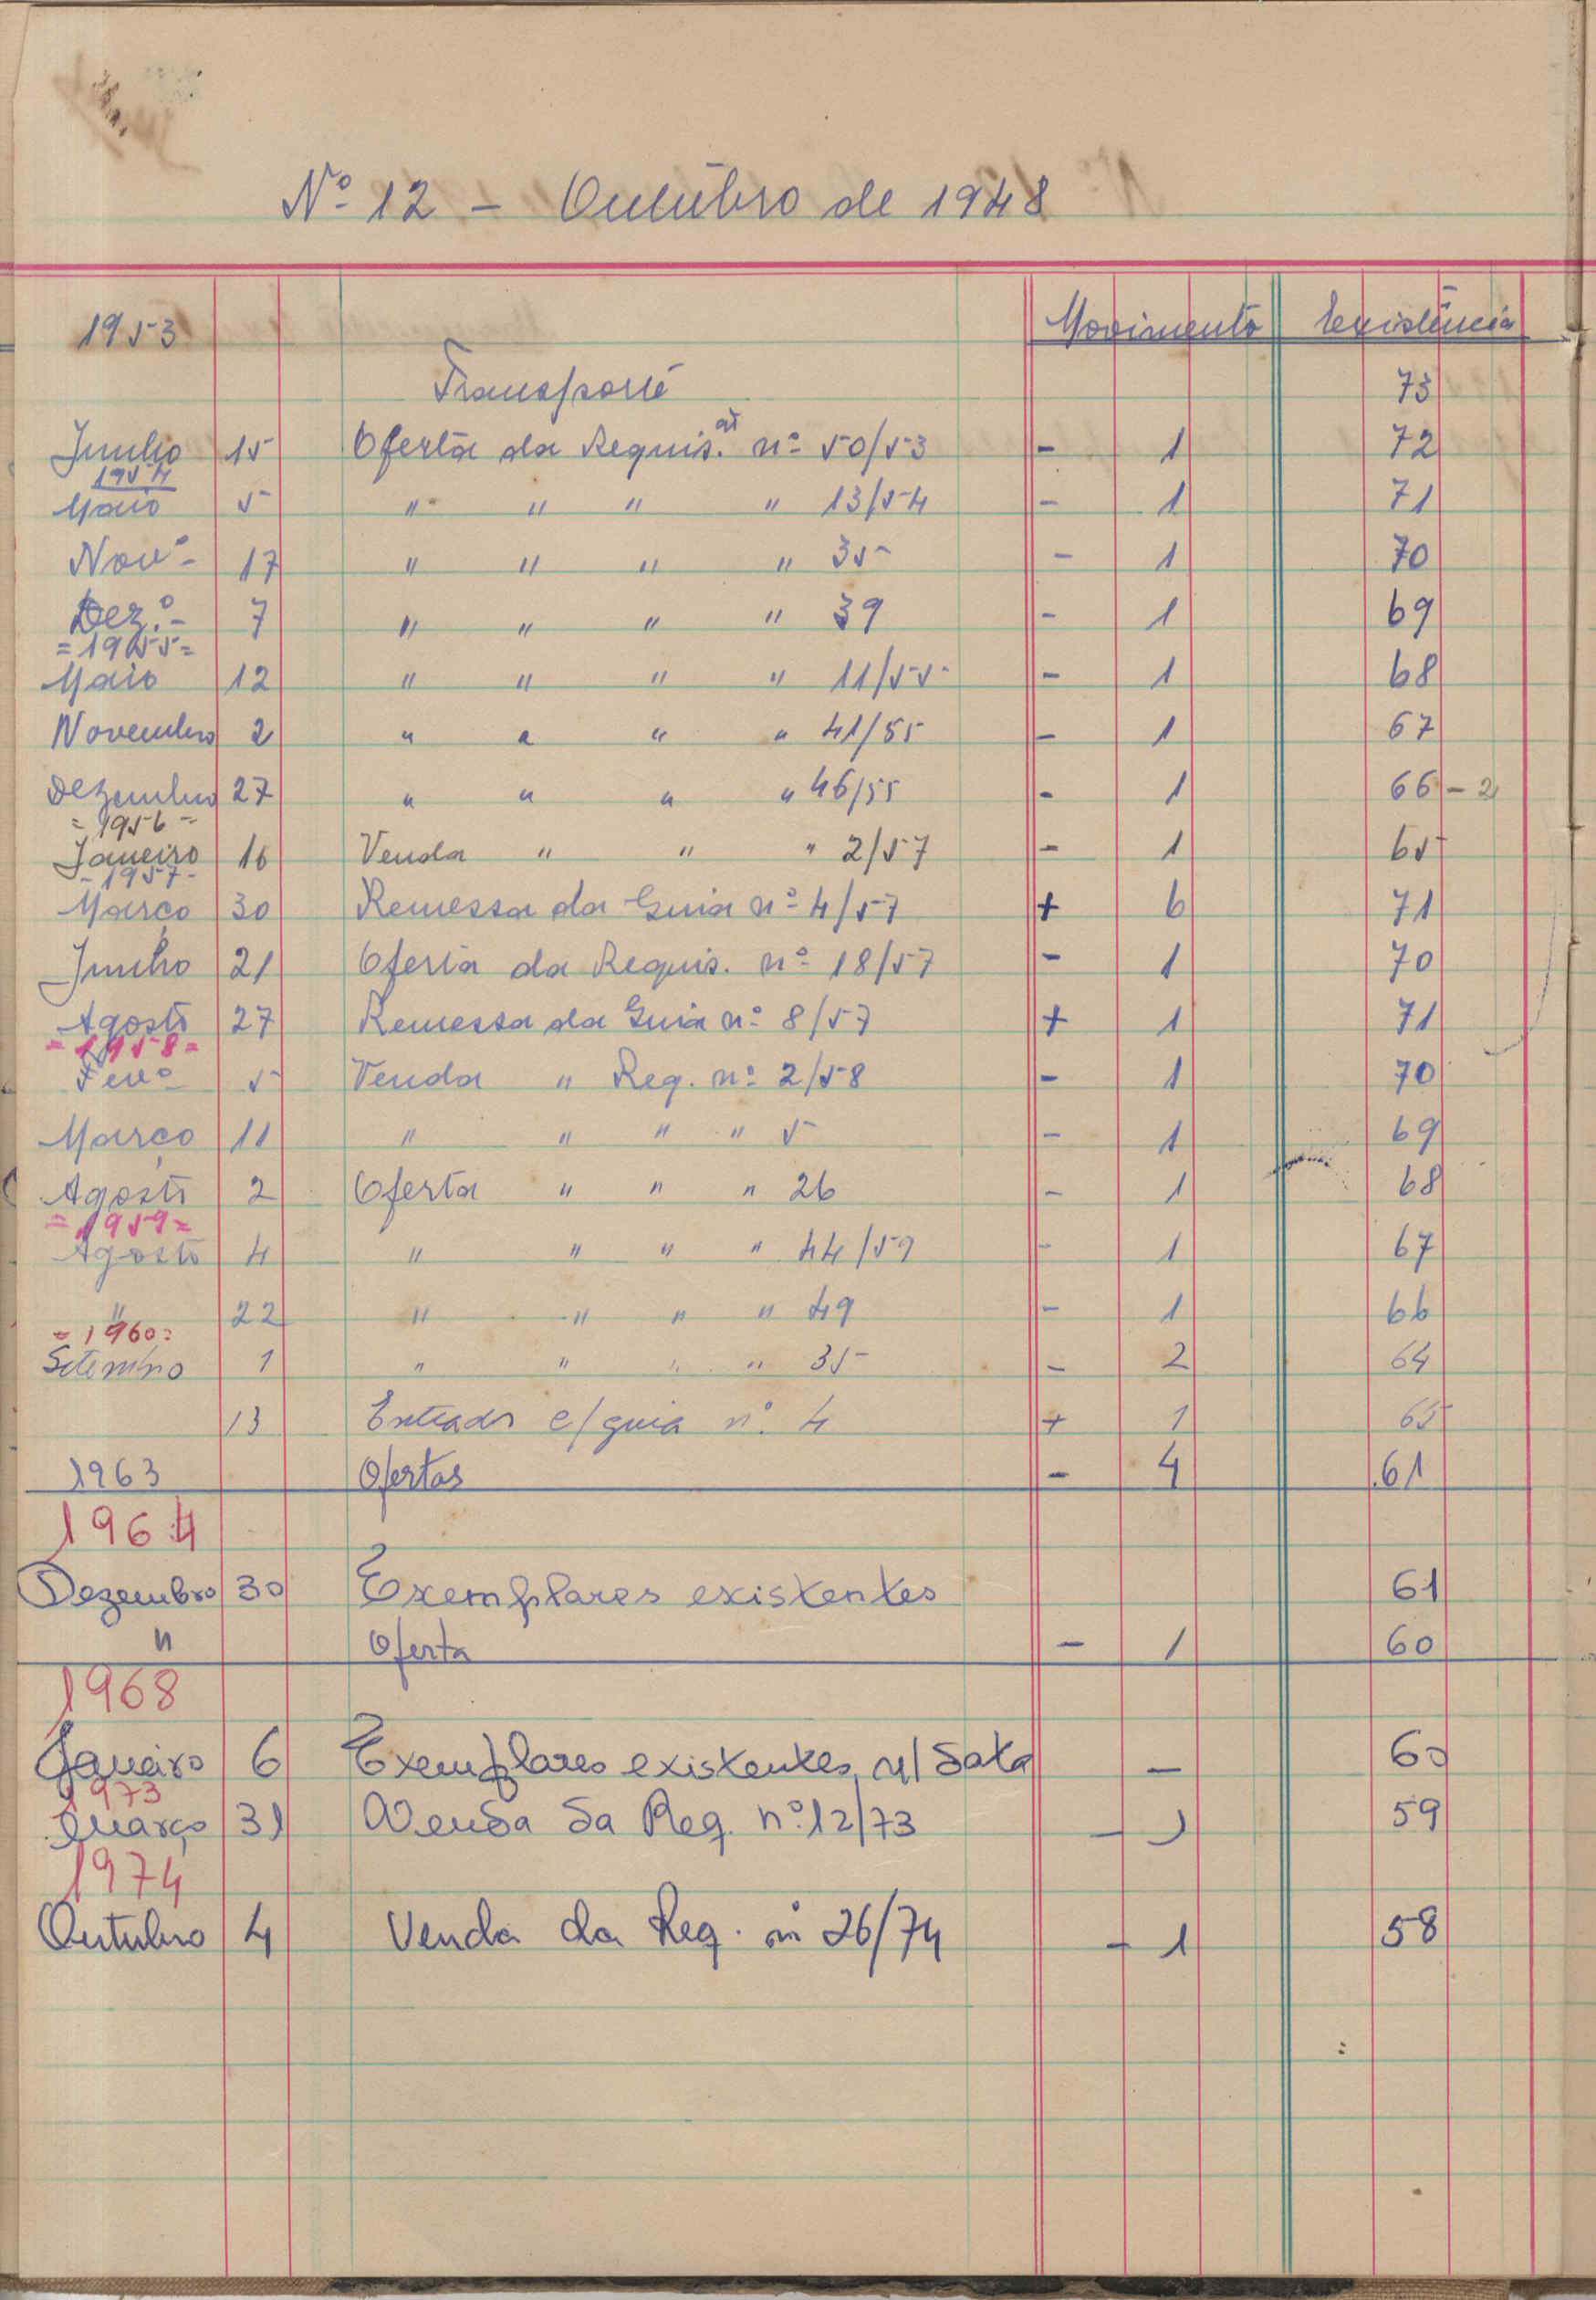 Nº 12 - Outubro de 1948
1953 Movimento Existência
Transporte 73
Junho 15 Oferta da Requis. nº 50/53 - 1 72
1954
Maio 5 " " " " 13/54 - 1 71
Novº 17 " " " " 35 - 1 70
Dez.º 7 " " " " 39 - 1 69
=1955=
Maio 12 " " " " 11/55 - 1 68
Novembro 2 " " " " 41/55 - 1 67
Dezembro 27 " " " " 46/55 - 1 66 - 2
=1956=
Janeiro 16 Venda " " " 2/57 - 1 65
-1957-
Março 30 Remessa da Guia nº 4/57 + 6 71
Junho 21 Oferta da Requis. nº 18/57 - 1 70
Agosto 27 Remessa da Guia nº 8/57 + 1 71
=1958=
Fevº 5 Venda " Req. nº 2/58 - 1 70
Março 11 " " " " 5 - 1 69
Agosto 2 Oferta " " " 26 - 1 68
=1959=
Agosto 4 " " " " 44/59 - 1 67
" 22 " " " " 49 - 1 66
=1960=
Setembro 1 " " " " 35 - 2 64
13 Entrada c/guia nº 4 + 1 65
1963 Ofertas - 4 61
1964
Dezembro 30 Exemplares existentes 61
" Oferta - 1 60
1968
Janeiro 6 Exemplares existentes n/data - 60
1973
Março 31 Venda da Req. nº 12/73 - 1 59
1974
Outubro 4 Venda da Req. nº 26/74 - 1 58